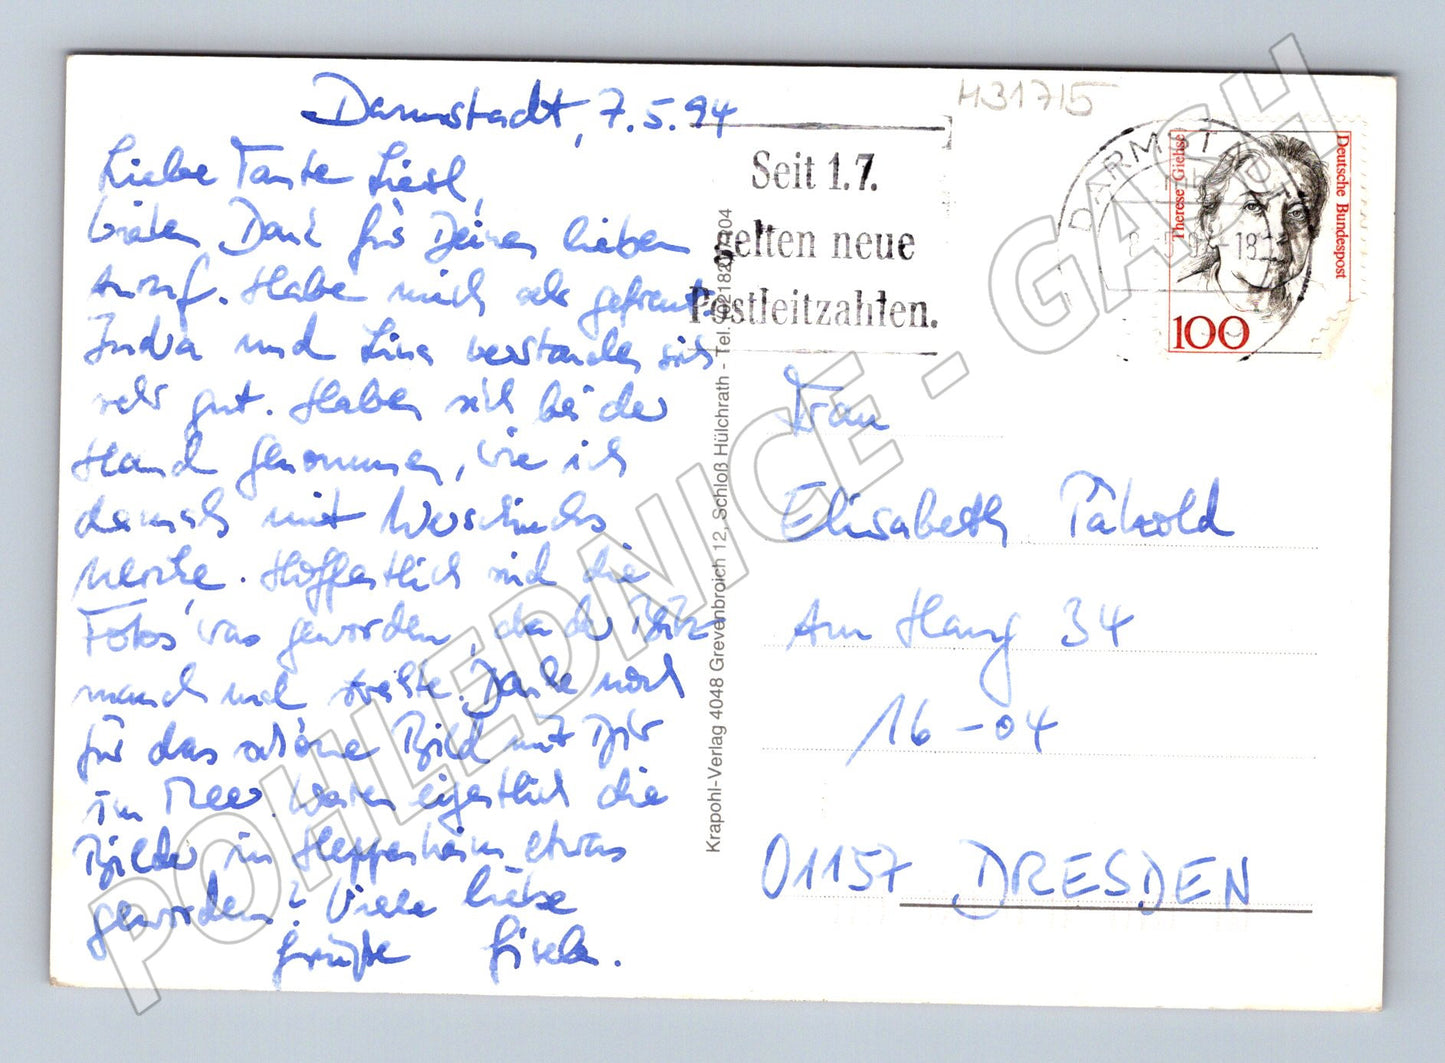 H31715
Darmstadt, 7.5.94
Liebe Tante Liesl,
vielen Dank für Deinen lieben
Anruf. Habe mich sehr gefreut.
Indra und Lina verstanden sich
sehr gut. Haben sich bei der
Hand genommen, wie ich
damals mit
Hoffentlich sind die
Fotos was geworden, da der Blitz
manch mal streikte. Danke noch
für das schöne Bild mit Dir
im Meer. Waren eigentlich die
Bilder in Heppenheim etwas
geworden? Viele liebe
Grüße Gisela.
Krapohl-Verlag 4048 Grevenbroich 12, Schloß Hülchrath - Tel.
Seit 1.7.
gelten neue
Postleitzahlen.
DARMSTADT
18
Therese Giehse
Deutsche Bundespost
100
Frau
Elisabeth
Am Hang 34
16-04
01157 DRESDEN
POHLEDNICE - GASH